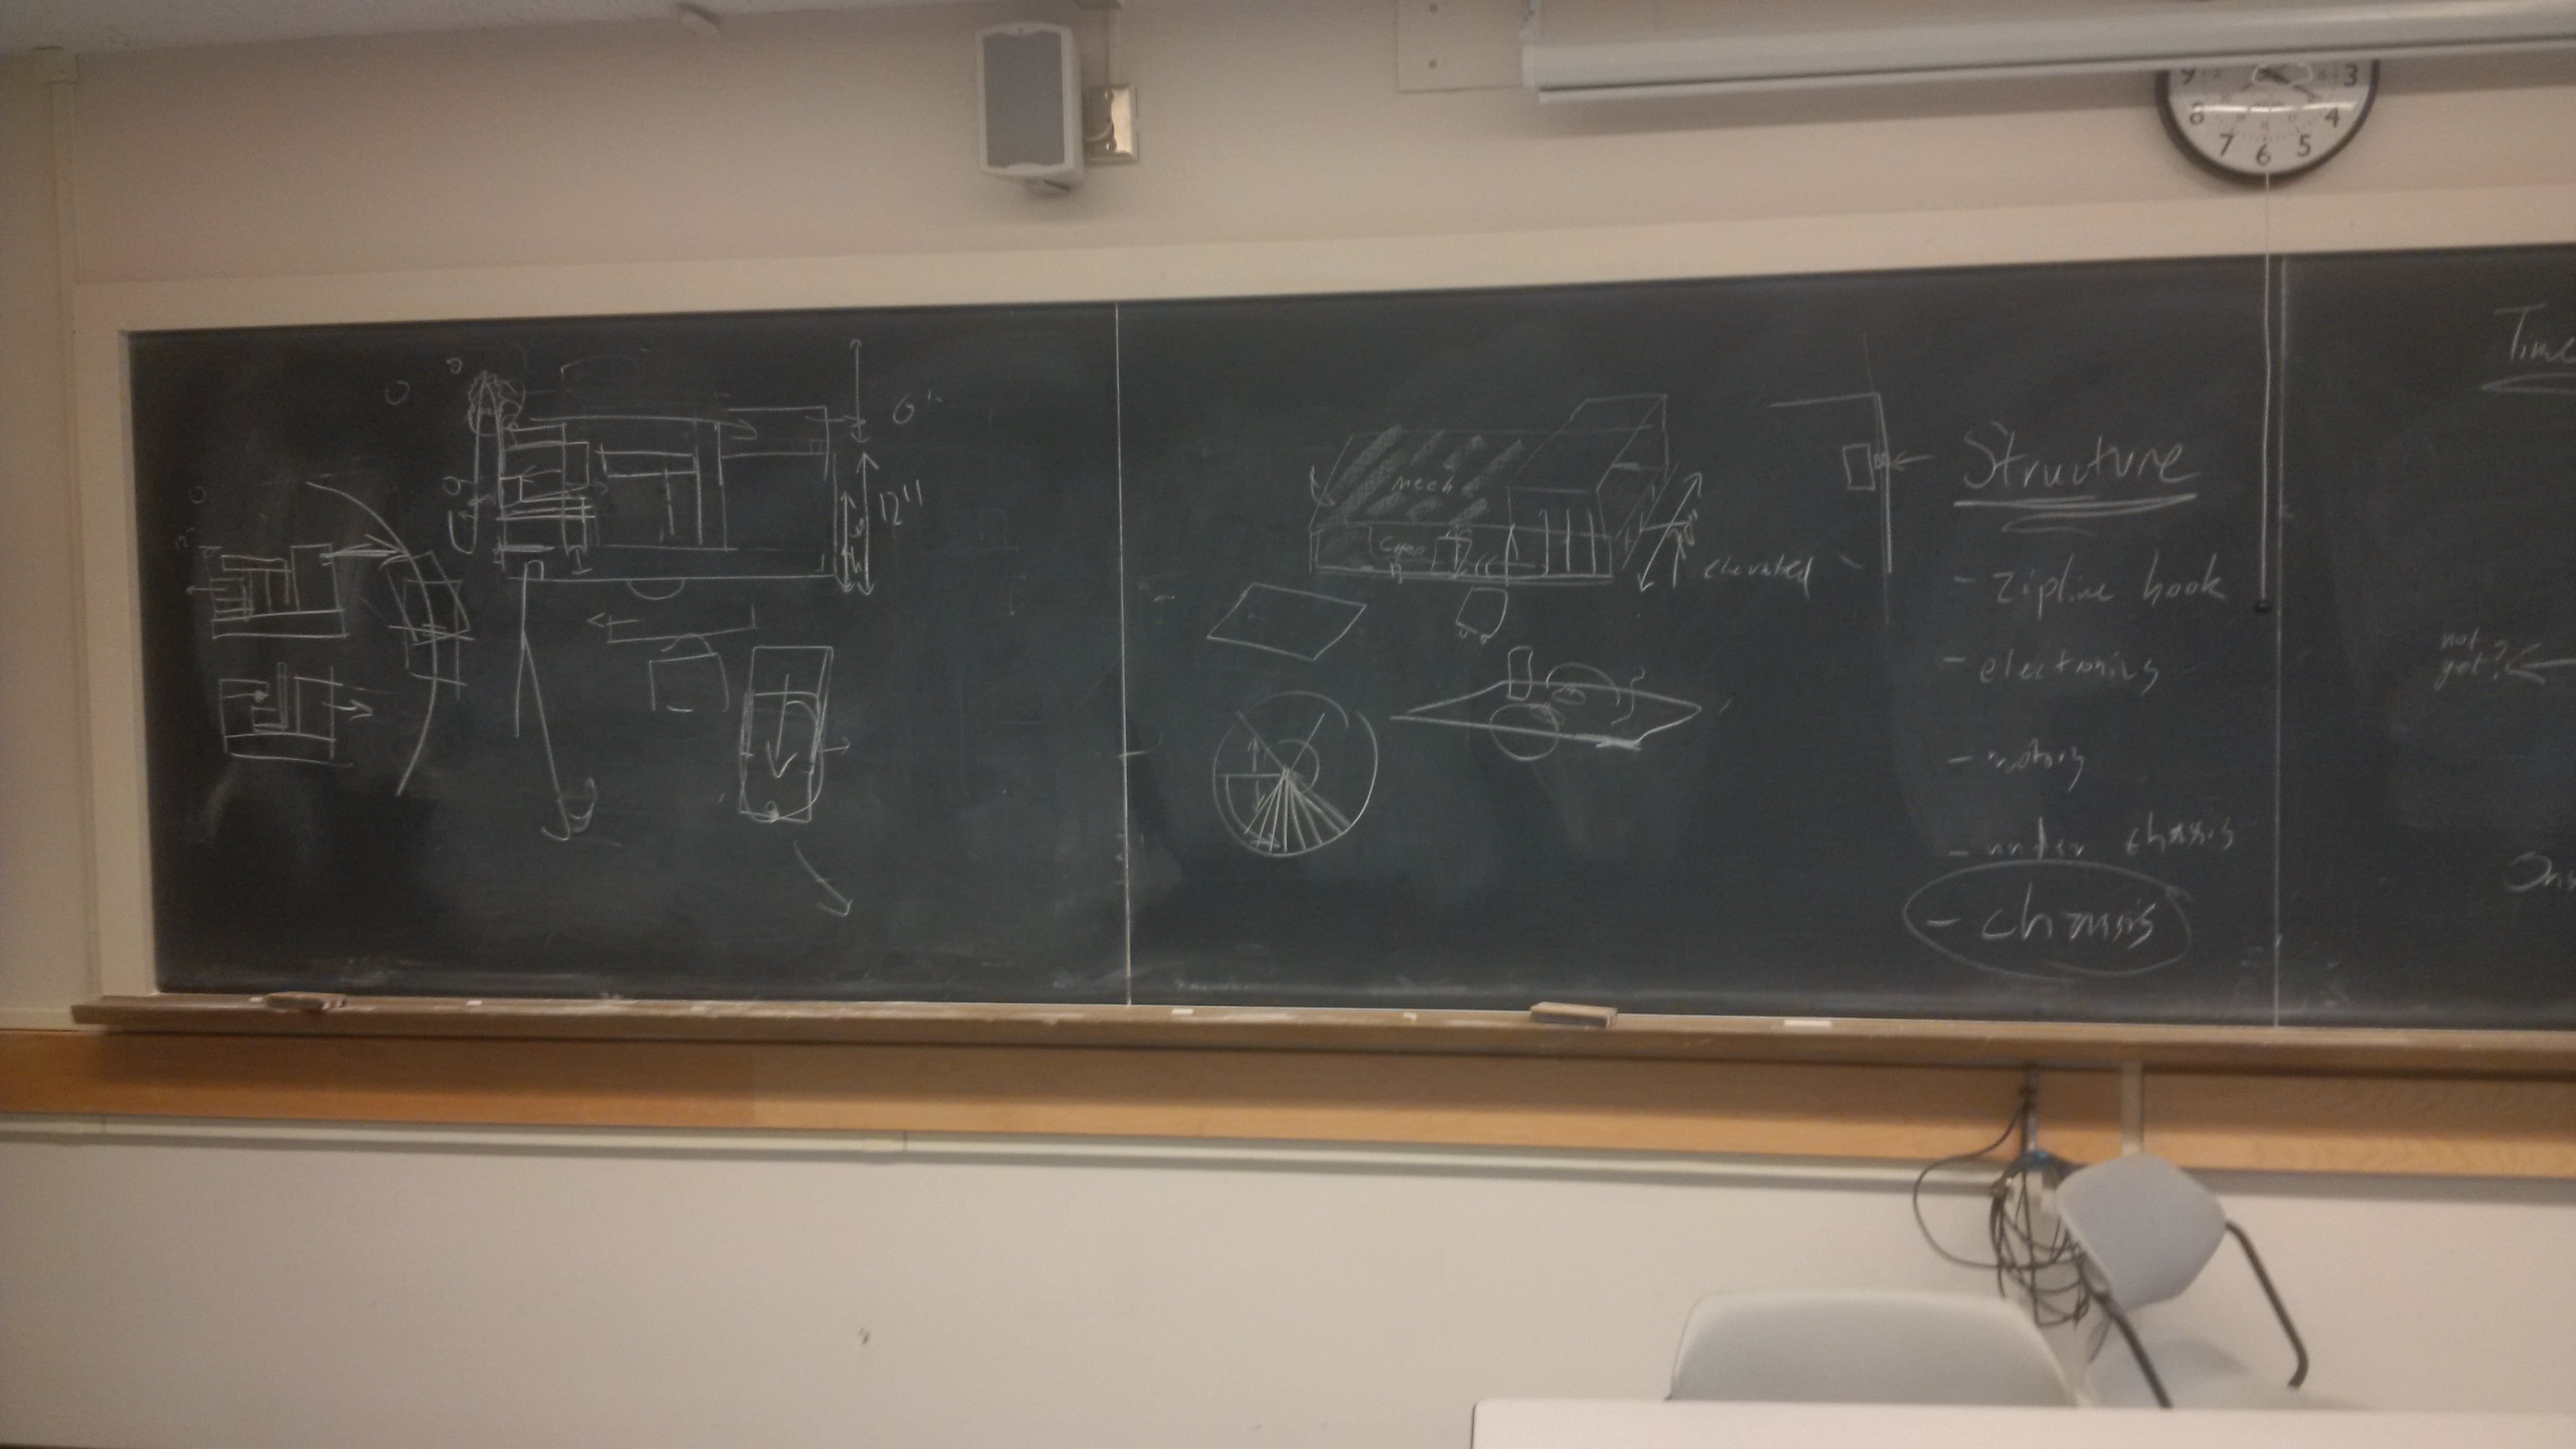 6"
12"
Mech
elevated
Structure
- zipline hook
- electronics
- motors
- under chassis
- chassis
Time
not
yet?
9 3
8 4
7 6 5